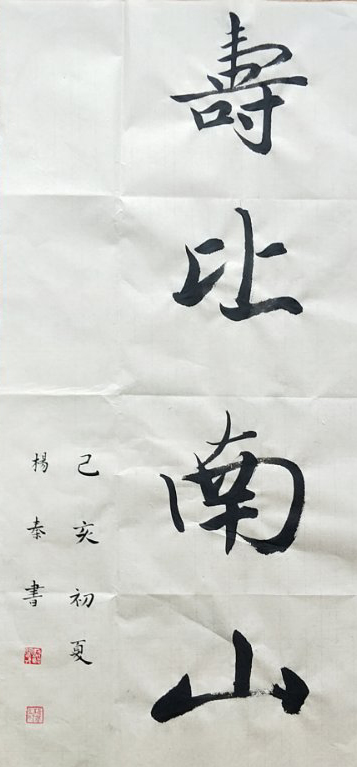 壽比南山
己亥初夏
楊秦書